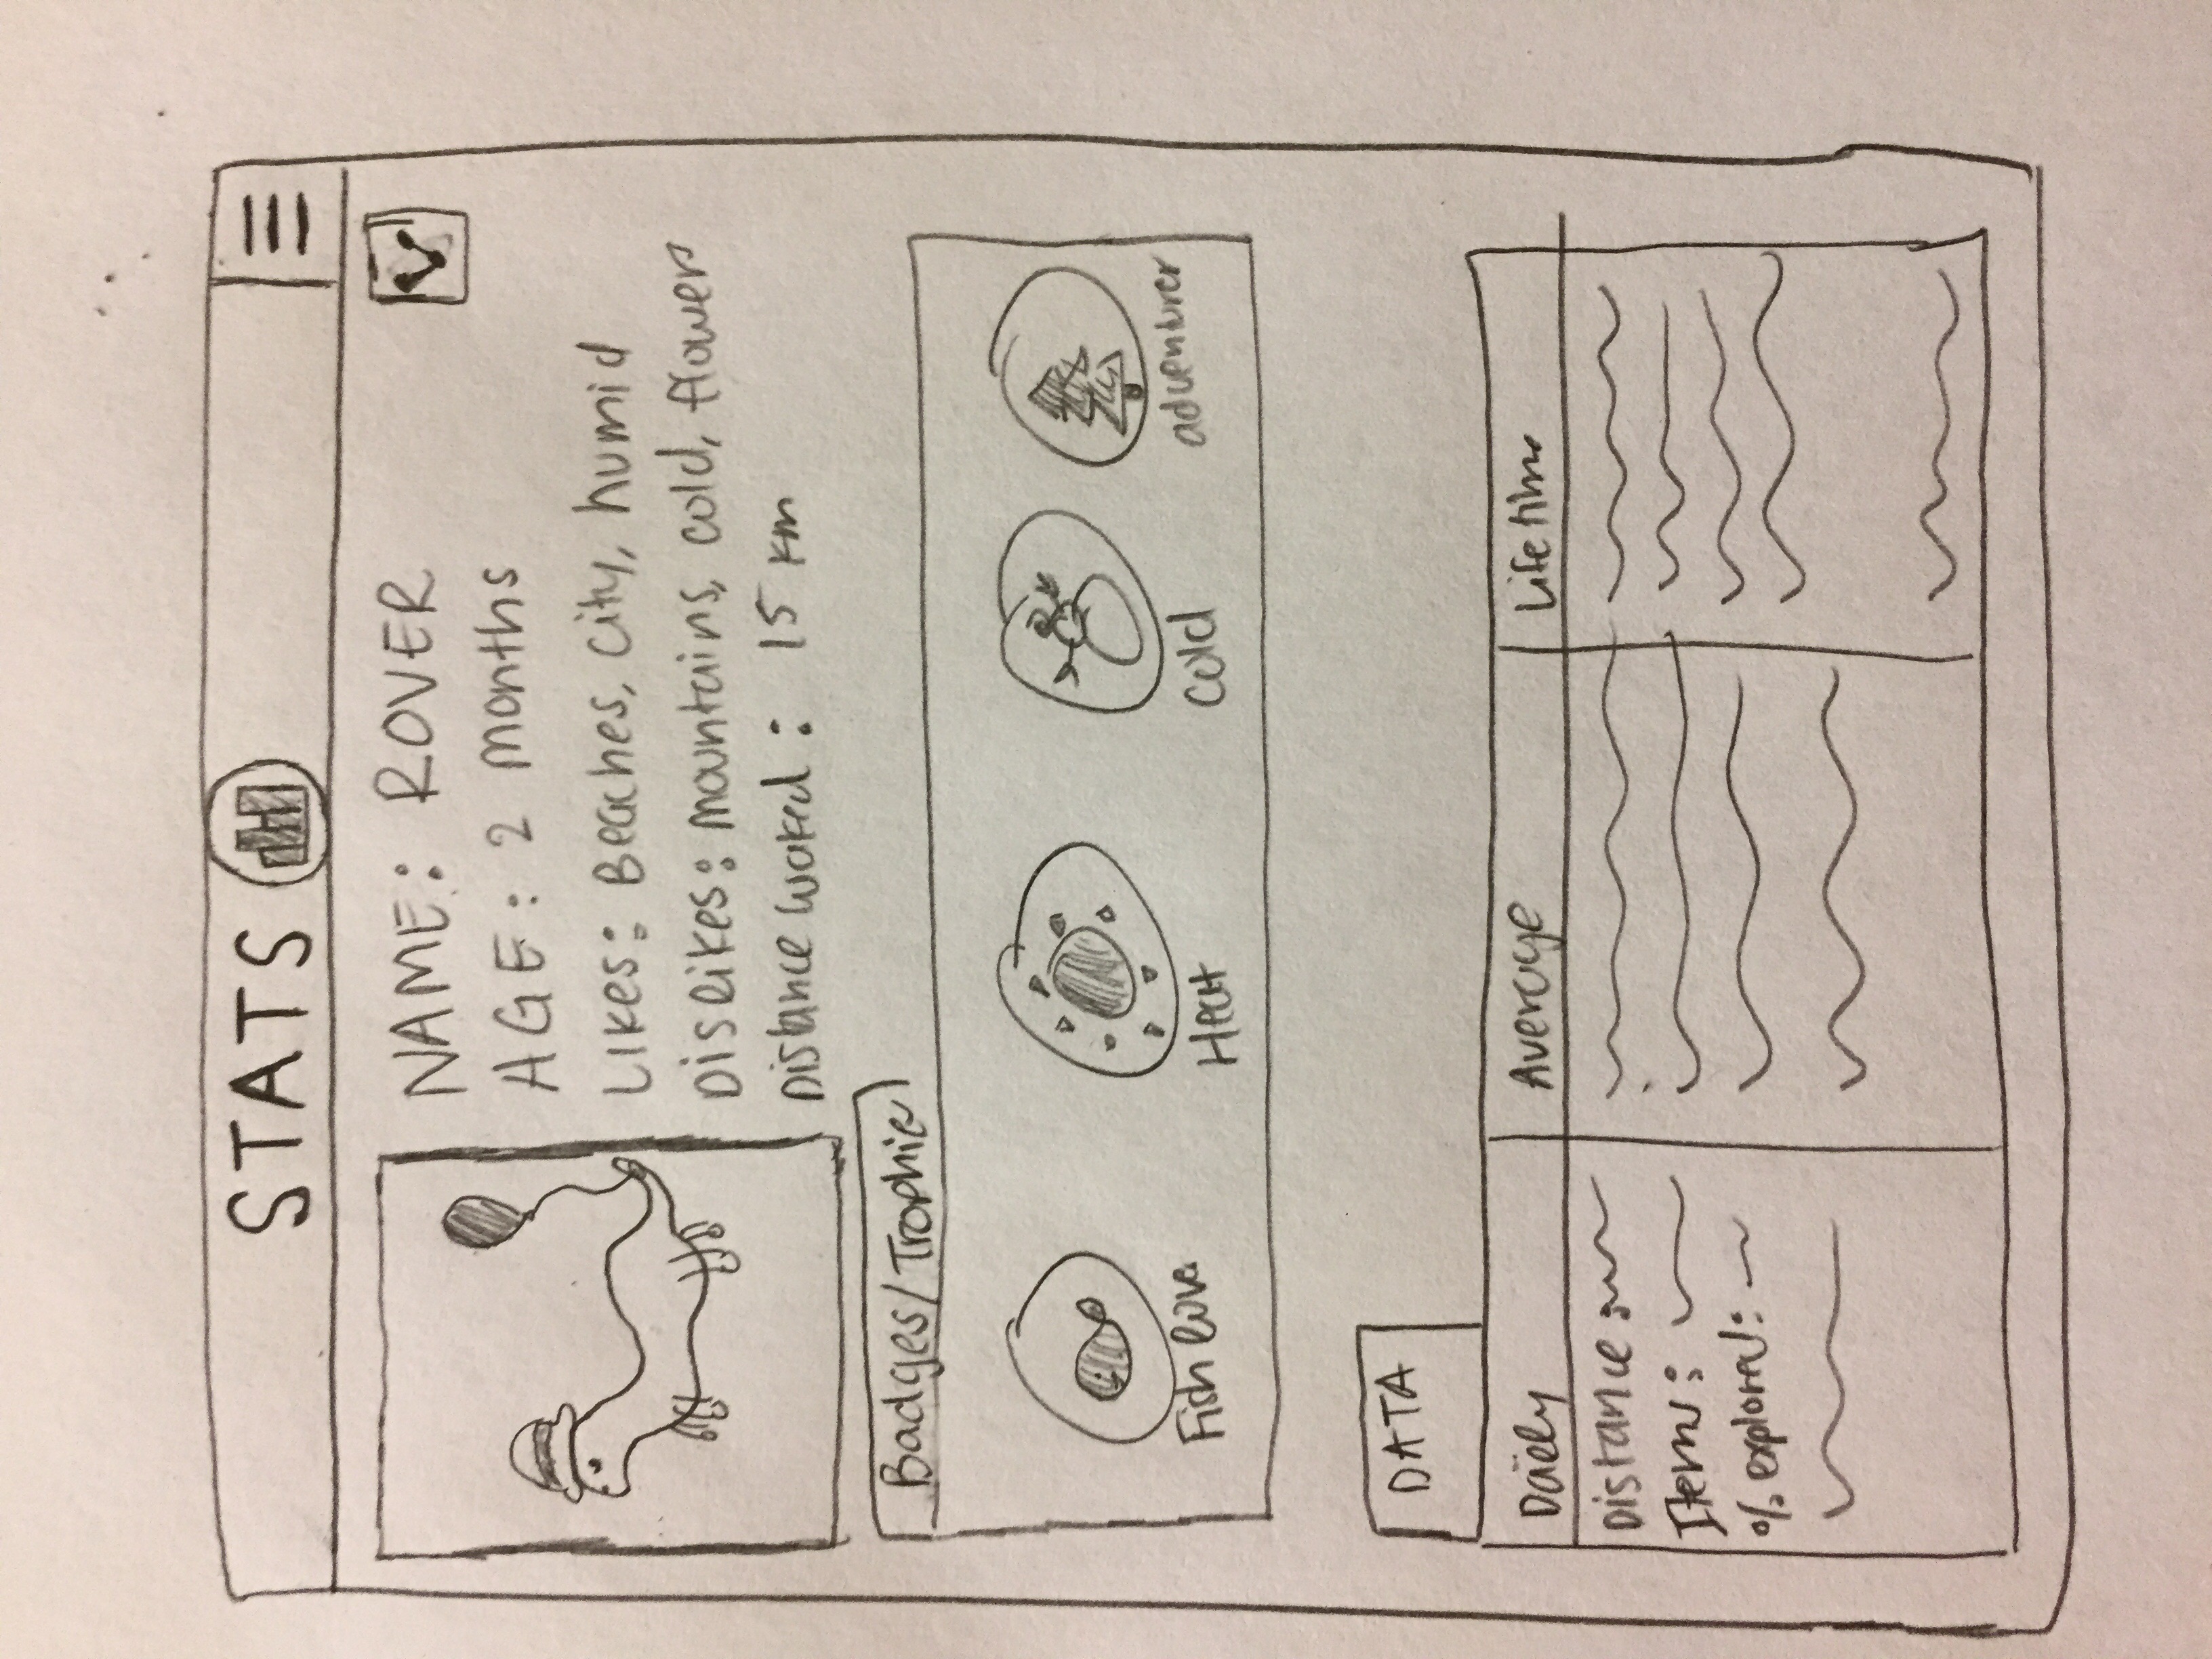 STATS
NAME: ROVER
AGE: 2 months
Likes: Beaches, city, humid
Dislikes: mountains, cold, flowers
Distance waked: 15 km
Badges/Trophie
Fish love
Heat
Cold
adventurer
DATA
Daily
Average
Lifetime
Distance:
Items:
% explored: